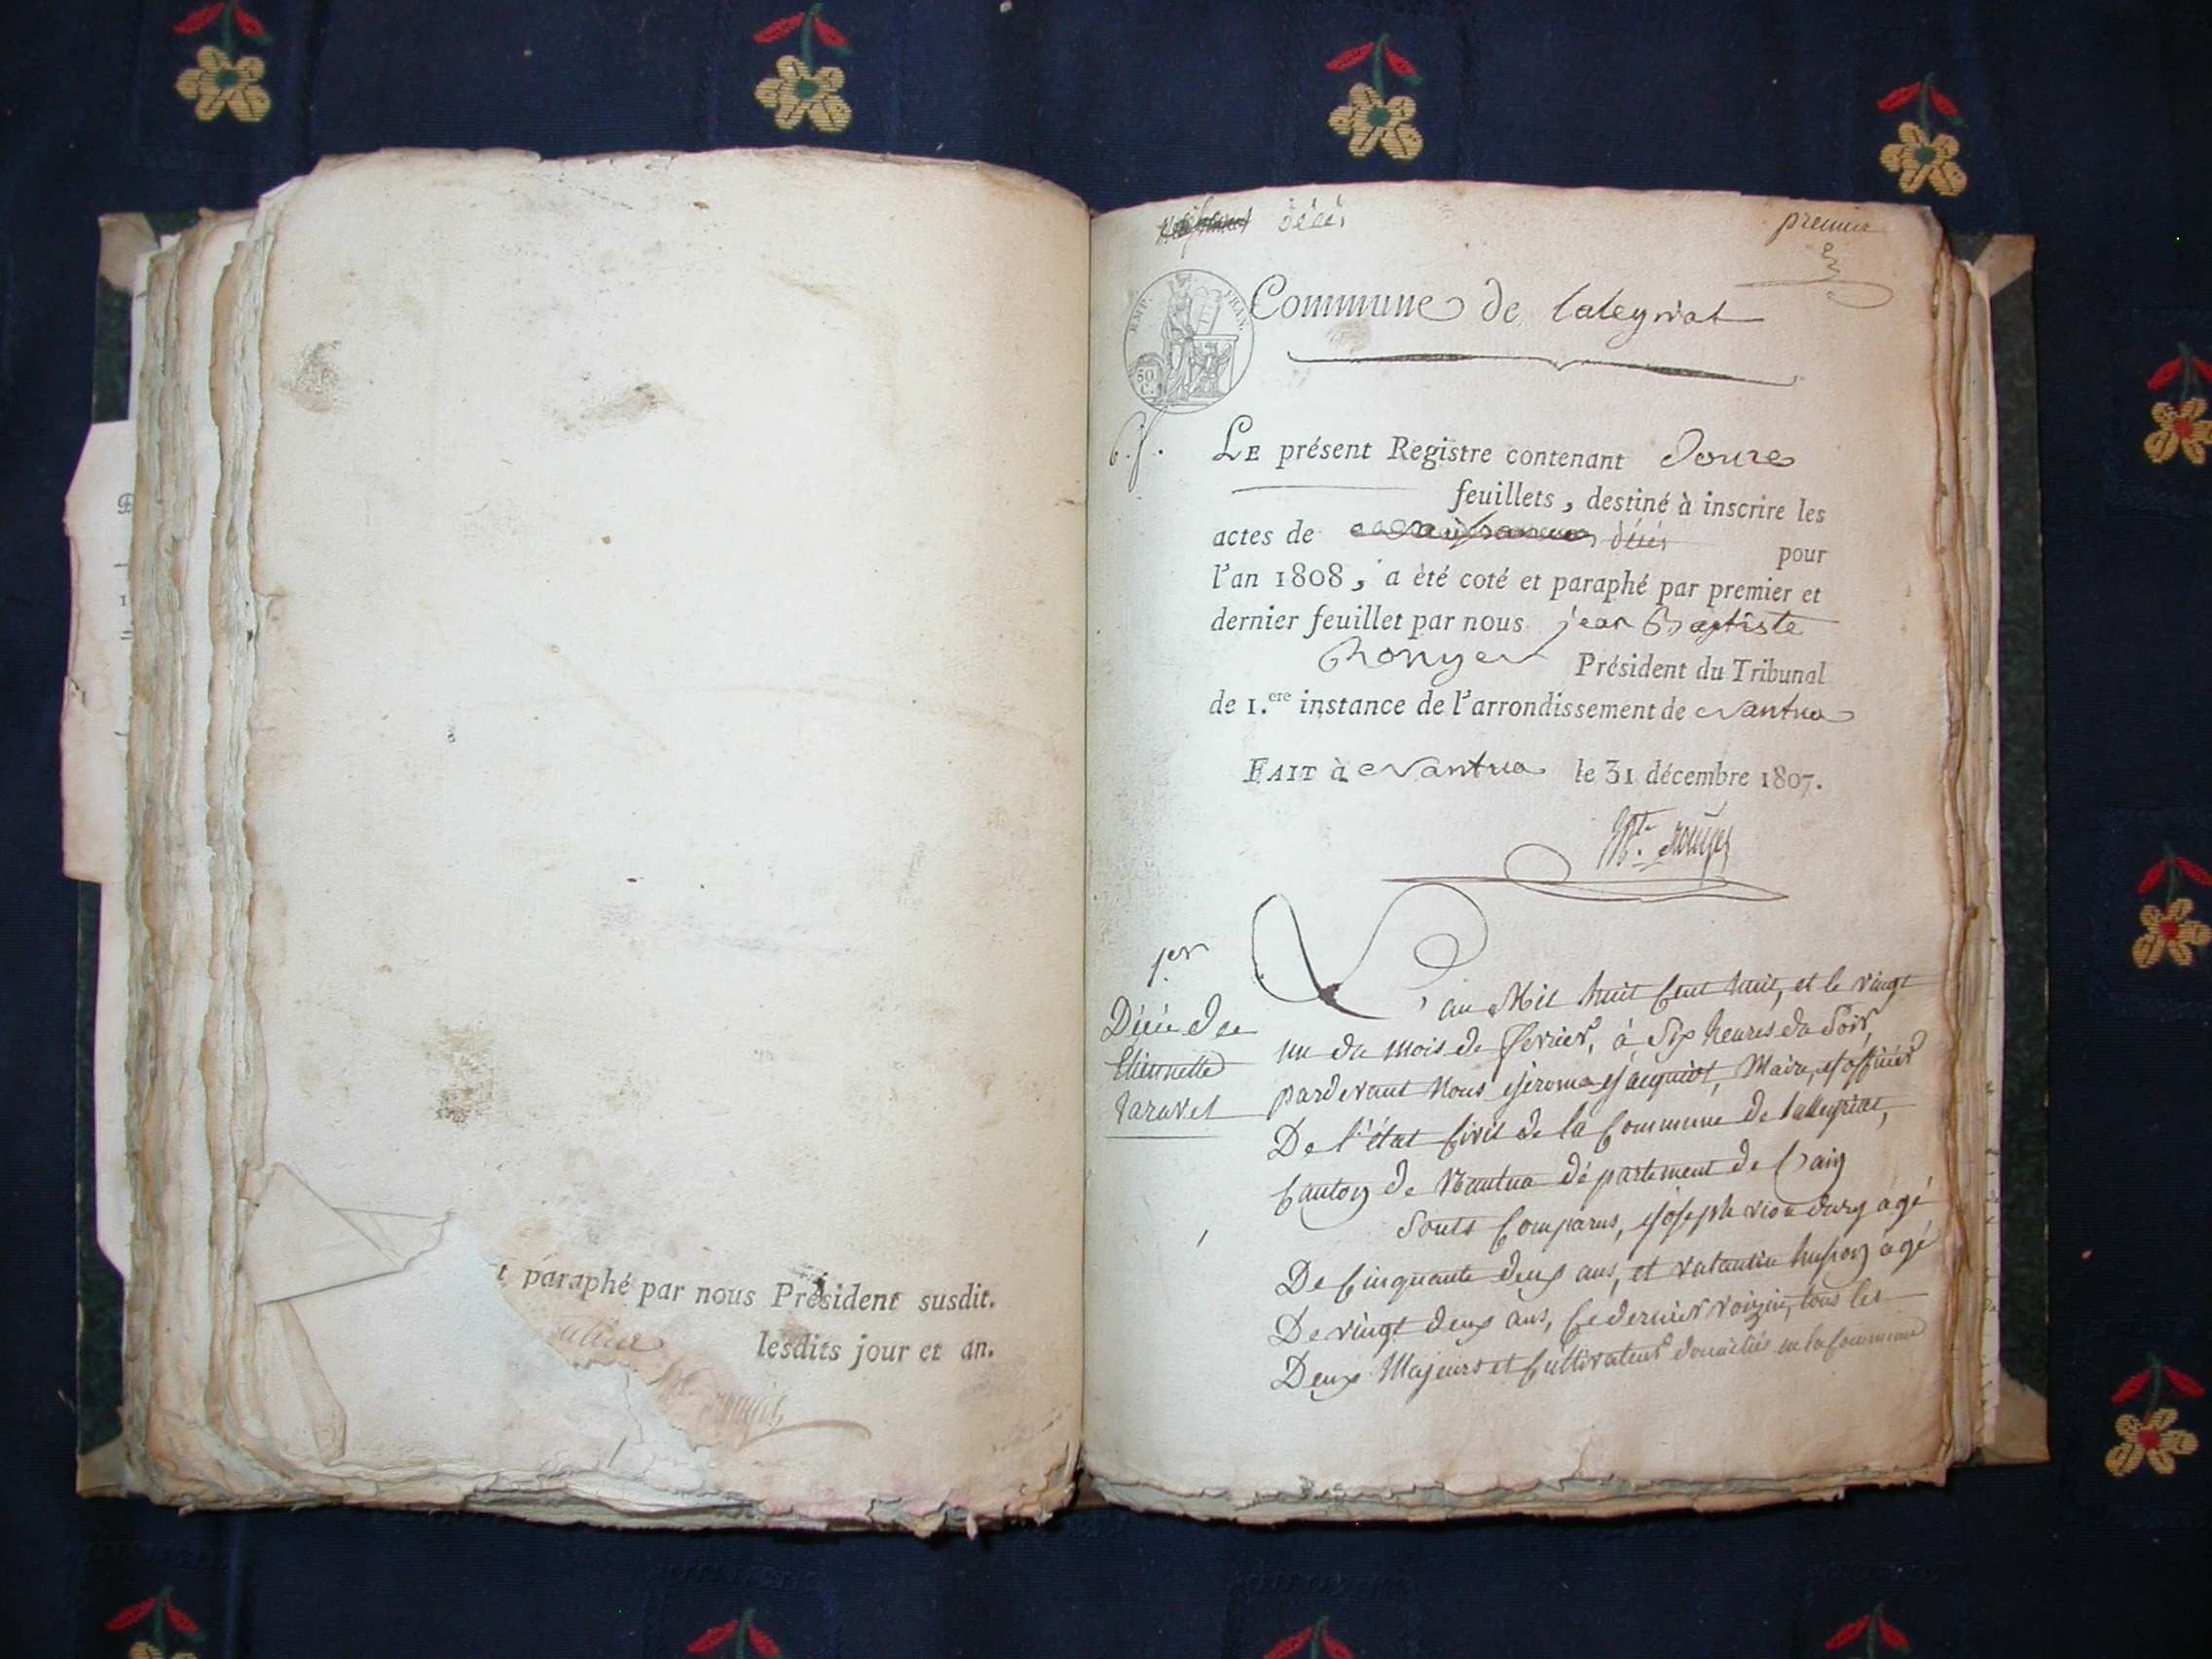 t paraphé par nous Président susdit.
lesdits jour et an.
décés
premier
Commune de Laleyriat
EMP. FRAN.
50 C.
LE présent Registre contenant Douze
feuillets, destiné à inscrire les
actes de décés pour
l'an 1808, a été coté et paraphé par premier et
dernier feuillet par nous jean Baptiste
Rouyer Président du Tribunal
de 1.ere instance de l'arrondissement de Nantua
FAIT à Nantua le 31 décembre 1807.
1er
Décée de
Etiennette
Taravel
L'an Mil huit Cent huit, et le vingt
un du mois de fevrier, à Six heures du Soir,
pardevant Nous Jerome Jacquiot, Maire, et officier
De l'état Civil de la Commune de Lalleyriat,
Canton de Nantua département de L'ain
Sonts Comparus, Joseph vion dury agé
De Cinquante deux ans, et valantin husson agé
De vingt deux ans, Ce dernier voizin, tous les
Deux Majeurs et Cultivateurs domiciliés en la Commune